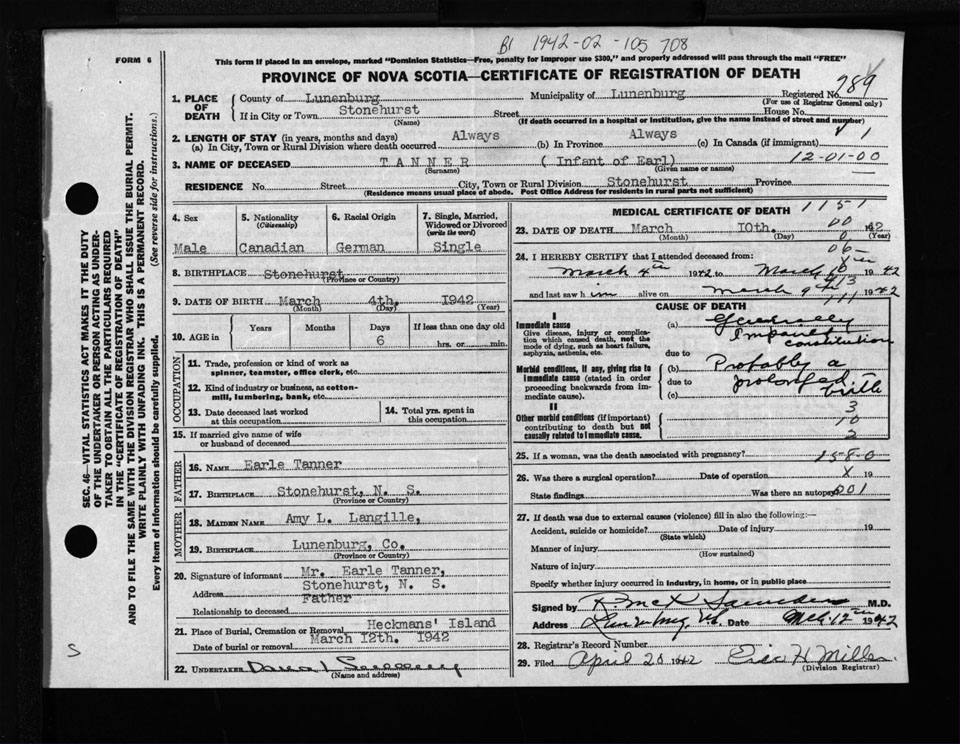 B1 1942-02-105 708
FORM 6
This form if placed in an envelope, marked "Dominion Statistics—Free, penalty for improper use $300," and properly addressed will pass through the mail "FREE"
PROVINCE OF NOVA SCOTIA—CERTIFICATE OF REGISTRATION OF DEATH
Registered No. 789
(For use of Registrar General only)
1. PLACE OF DEATH
County of Lunenburg Municipality of Lunenburg
If in City or Town Stonehurst Street House No.
(Name) (If death occurred in a hospital or institution, give the name instead of street and number)
2. LENGTH OF STAY (in years, months and days)
(a) In City, Town or Rural Division where death occurred Always (b) In Province Always (c) In Canada (if immigrant) 1
12-01-00
3. NAME OF DECEASED TANNER (Infant of Earl)
(Surname) (Given name or names)
RESIDENCE No. Street City, Town or Rural Division Stonehurst Province
(Residence means usual place of abode. Post Office Address for residents in rural parts not sufficient)
4. Sex
Male
5. Nationality
(Citizenship)
Canadian
6. Racial Origin
German
7. Single, Married, Widowed or Divorced
(write the word)
Single
8. BIRTHPLACE Stonehurst
(Province or Country)
9. DATE OF BIRTH March 4th, 1942
(Month) (Day) (Year)
10. AGE in
Years Months Days If less than one day old
6 hrs. or min.
OCCUPATION
11. Trade, profession or kind of work as
spinner, teamster, office clerk, etc.
12. Kind of industry or business, as cotton-
mill, lumbering, bank, etc.
13. Date deceased last worked
at this occupation
14. Total yrs. spent in
this occupation
15. If married give name of wife
or husband of deceased
FATHER
16. NAME Earle Tanner
17. BIRTHPLACE Stonehurst, N. S.
(Province or Country)
MOTHER
18. MAIDEN NAME Amy L. Langille,
19. BIRTHPLACE Lunenburg, Co.
(Province or Country)
20. Signature of informant Mr. Earle Tanner,
Address Stonehurst, N. S.
Relationship to deceased Father
21. Place of Burial, Cremation or Removal Heckmans' Island
Date of burial or removal March 12th. 1942
22. UNDERTAKER
(Name and address)
MEDICAL CERTIFICATE OF DEATH 1151
00
23. DATE OF DEATH March 10th. 1942
(Month) (Day) (Year)
06-
24. I HEREBY CERTIFY that I attended deceased from:
March 4th 1942 to March 10 1942
and last saw him alive on March 9th 1942
CAUSE OF DEATH
I
Immediate cause
Give disease, injury or complica-
tion which caused death, not the
mode of dying, such as heart failure,
asphyxia, asthenia, etc.
Morbid conditions, if any, giving rise to
immediate cause (stated in order
proceeding backwards from im-
mediate cause).
II
Other morbid conditions (if important)
contributing to death but not
causally related to immediate cause.
(a) Generally
Impaired
constitution
due to
(b) Probably a
due to prolonged
(c) birth
3
10
2
25. If a woman, was the death associated with pregnancy? 158-0
26. Was there a surgical operation? Date of operation X 19
State findings Was there an autopsy? 001
27. If death was due to external causes (violence) fill in also the following:—
Accident, suicide or homicide? Date of injury 19
(State which)
Manner of injury
(How sustained)
Nature of injury
Specify whether injury occurred in industry, in home, or in public place
Signed by R. McK Saunders M.D.
Address Lunenburg, N.S. Date Mch 12th 1942
28. Registrar's Record Number
29. Filed April 20 1942 Eric H. Miller
(Division Registrar)
SEC. 46—VITAL STATISTICS ACT MAKES IT THE DUTY
OF THE UNDERTAKER OR PERSON ACTING AS UNDER-
TAKER TO OBTAIN ALL THE PARTICULARS REQUIRED
IN THE "CERTIFICATE OF REGISTRATION OF DEATH"
AND TO FILE THE SAME WITH THE DIVISION REGISTRAR WHO SHALL ISSUE THE BURIAL PERMIT.
WRITE PLAINLY WITH UNFADING INK. THIS IS A PERMANENT RECORD.
Every item of information should be carefully supplied. (See reverse side for instructions.)
S